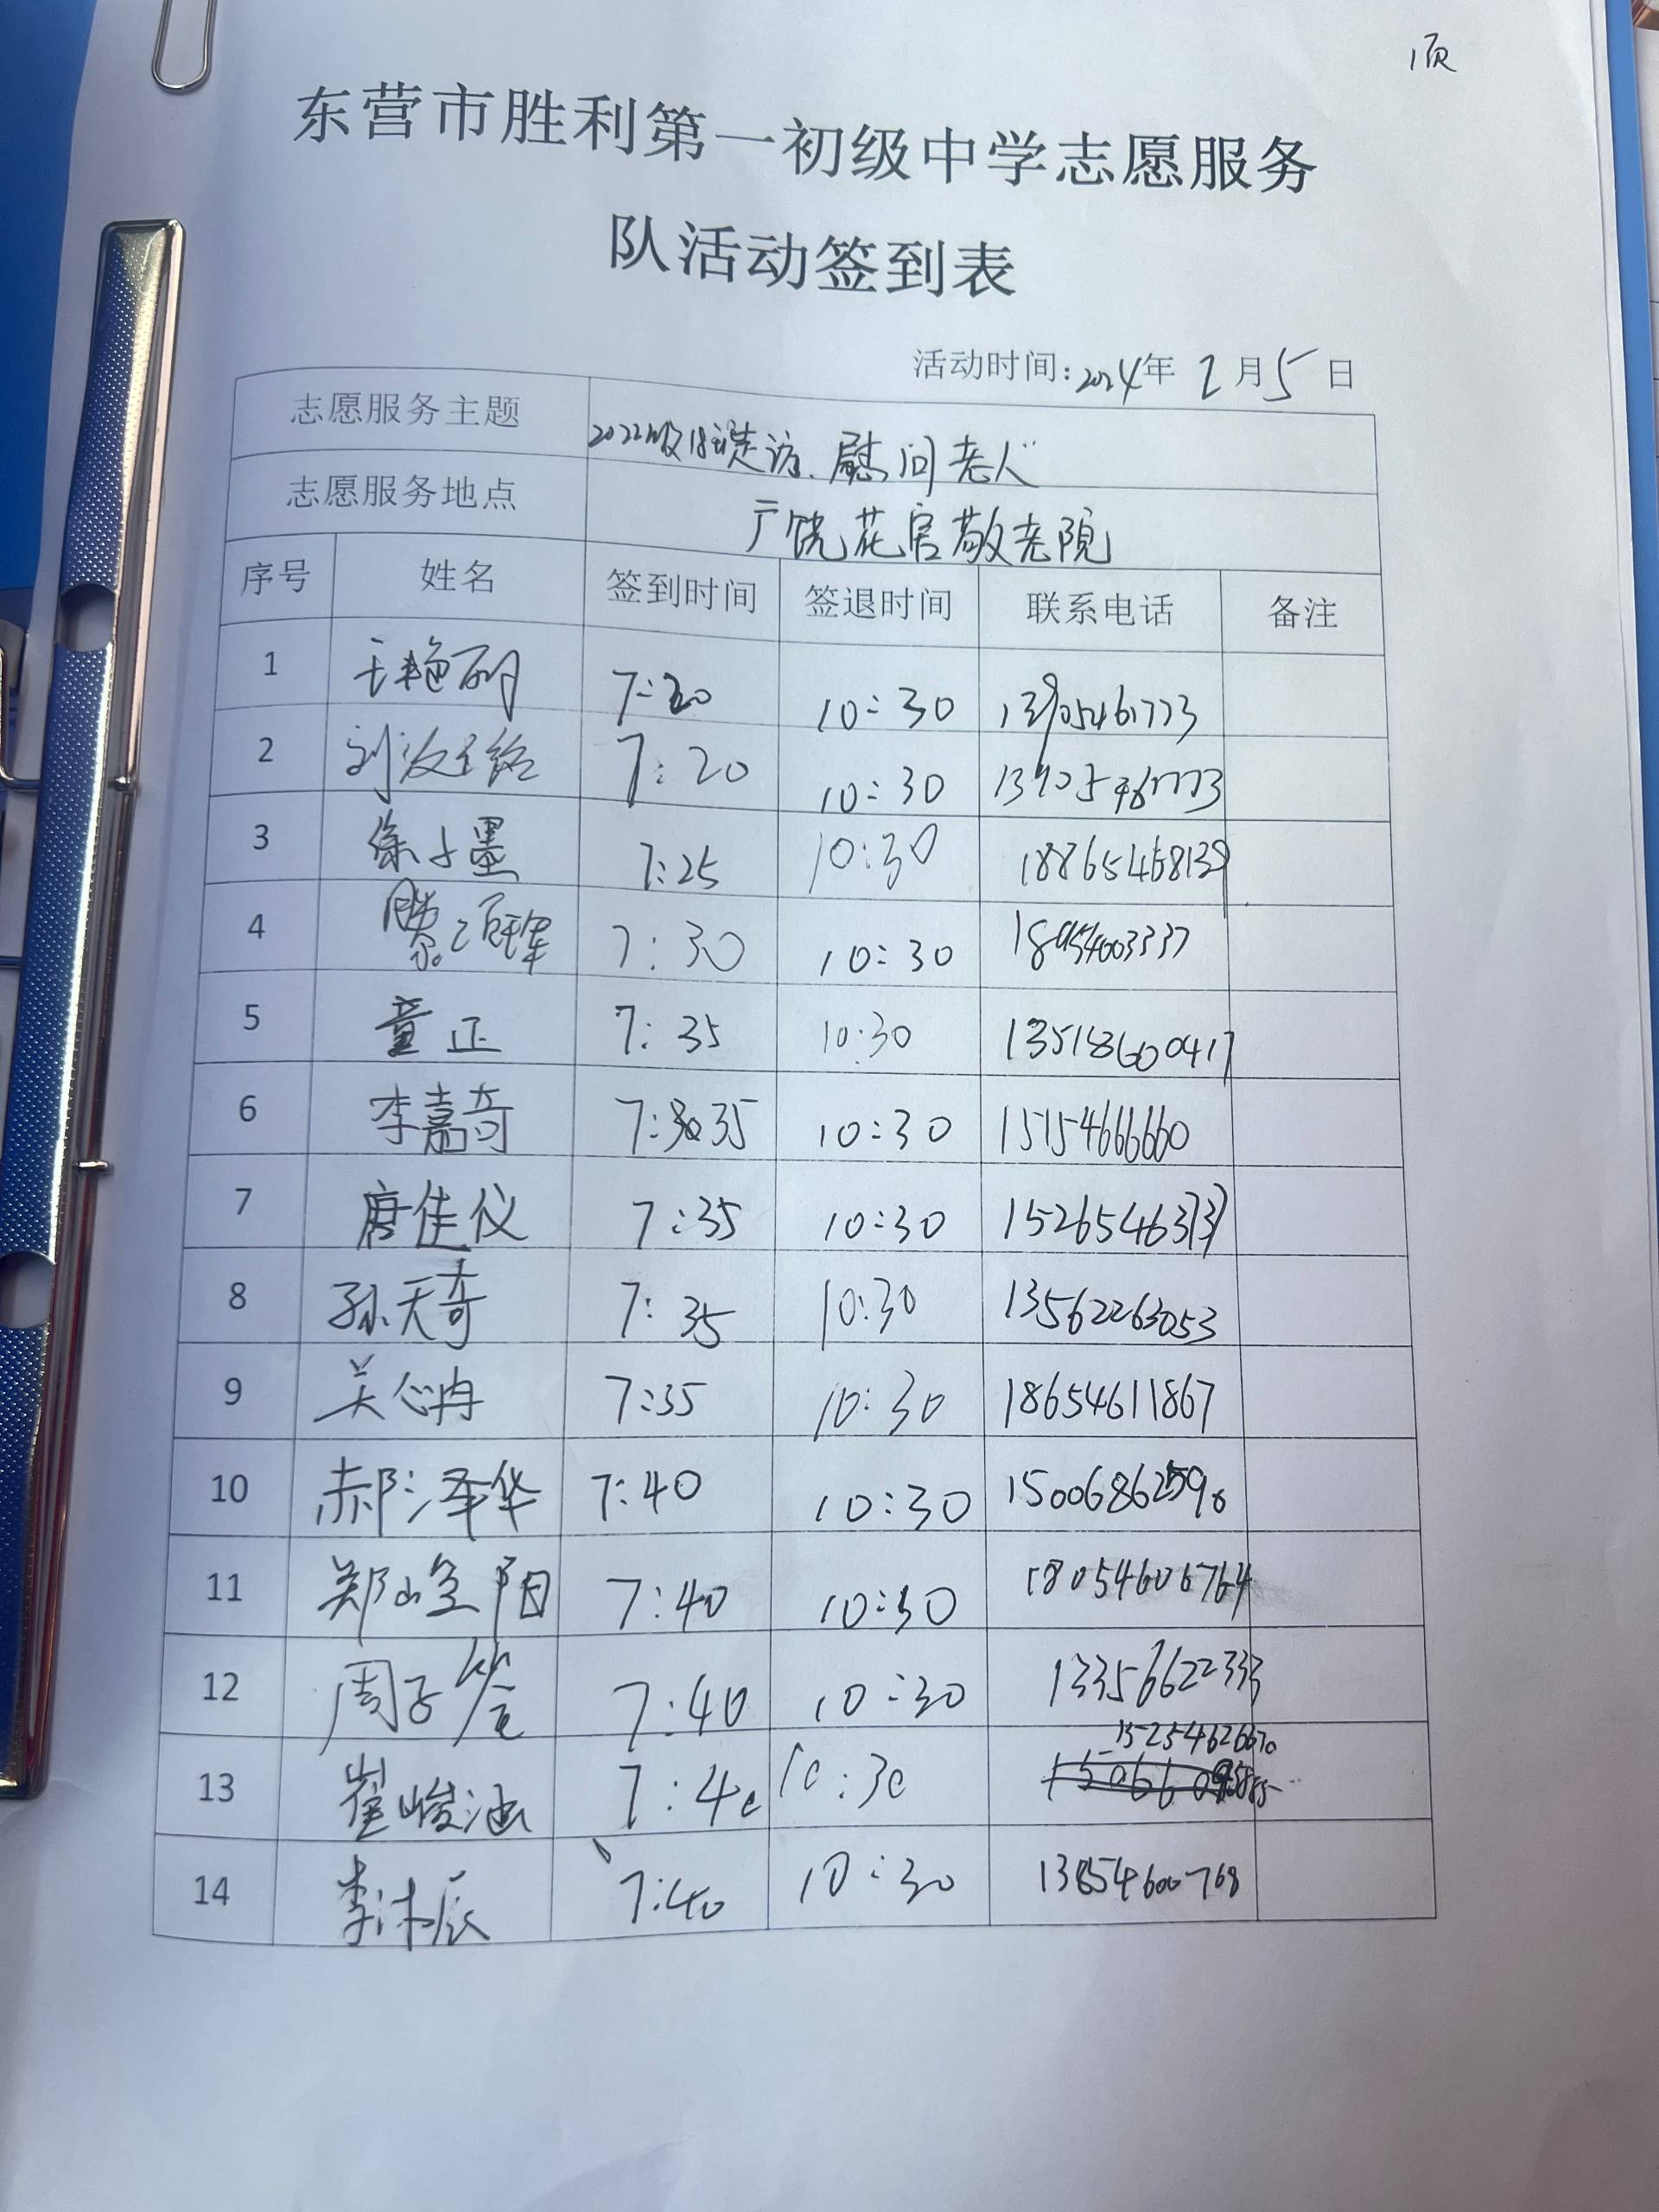 1页
东营市胜利第一初级中学志愿服务
队活动签到表
活动时间:2024年 2月5日
志愿服务主题 2022级18班走访、慰问老人
志愿服务地点 广饶花官敬老院
序号 姓名 签到时间 签退时间 联系电话 备注
1 7:20 10:30 13905461773
2 7:20 10:30 13905461773
3 徐小墨 7:25 10:30 18865468139
4 7:30 10:30 18954003337
5 童正 7:35 10:30 135183600417
6 李嘉奇 7:35 10:30 15154666660
7 唐佳仪 7:35 10:30
8 孙天奇 7:35 10:30 13562263053
9 关心冉 7:35 10:30 18654611867
10 郝泽华 7:40 10:30 15006862590
11 7:40 10:30 18054606764
12 周子筌 7:40 10:30 13356622333
13 崔峻涵 7:40 10:30 15254626670
14 李沐辰 7:40 10:30 13854600768